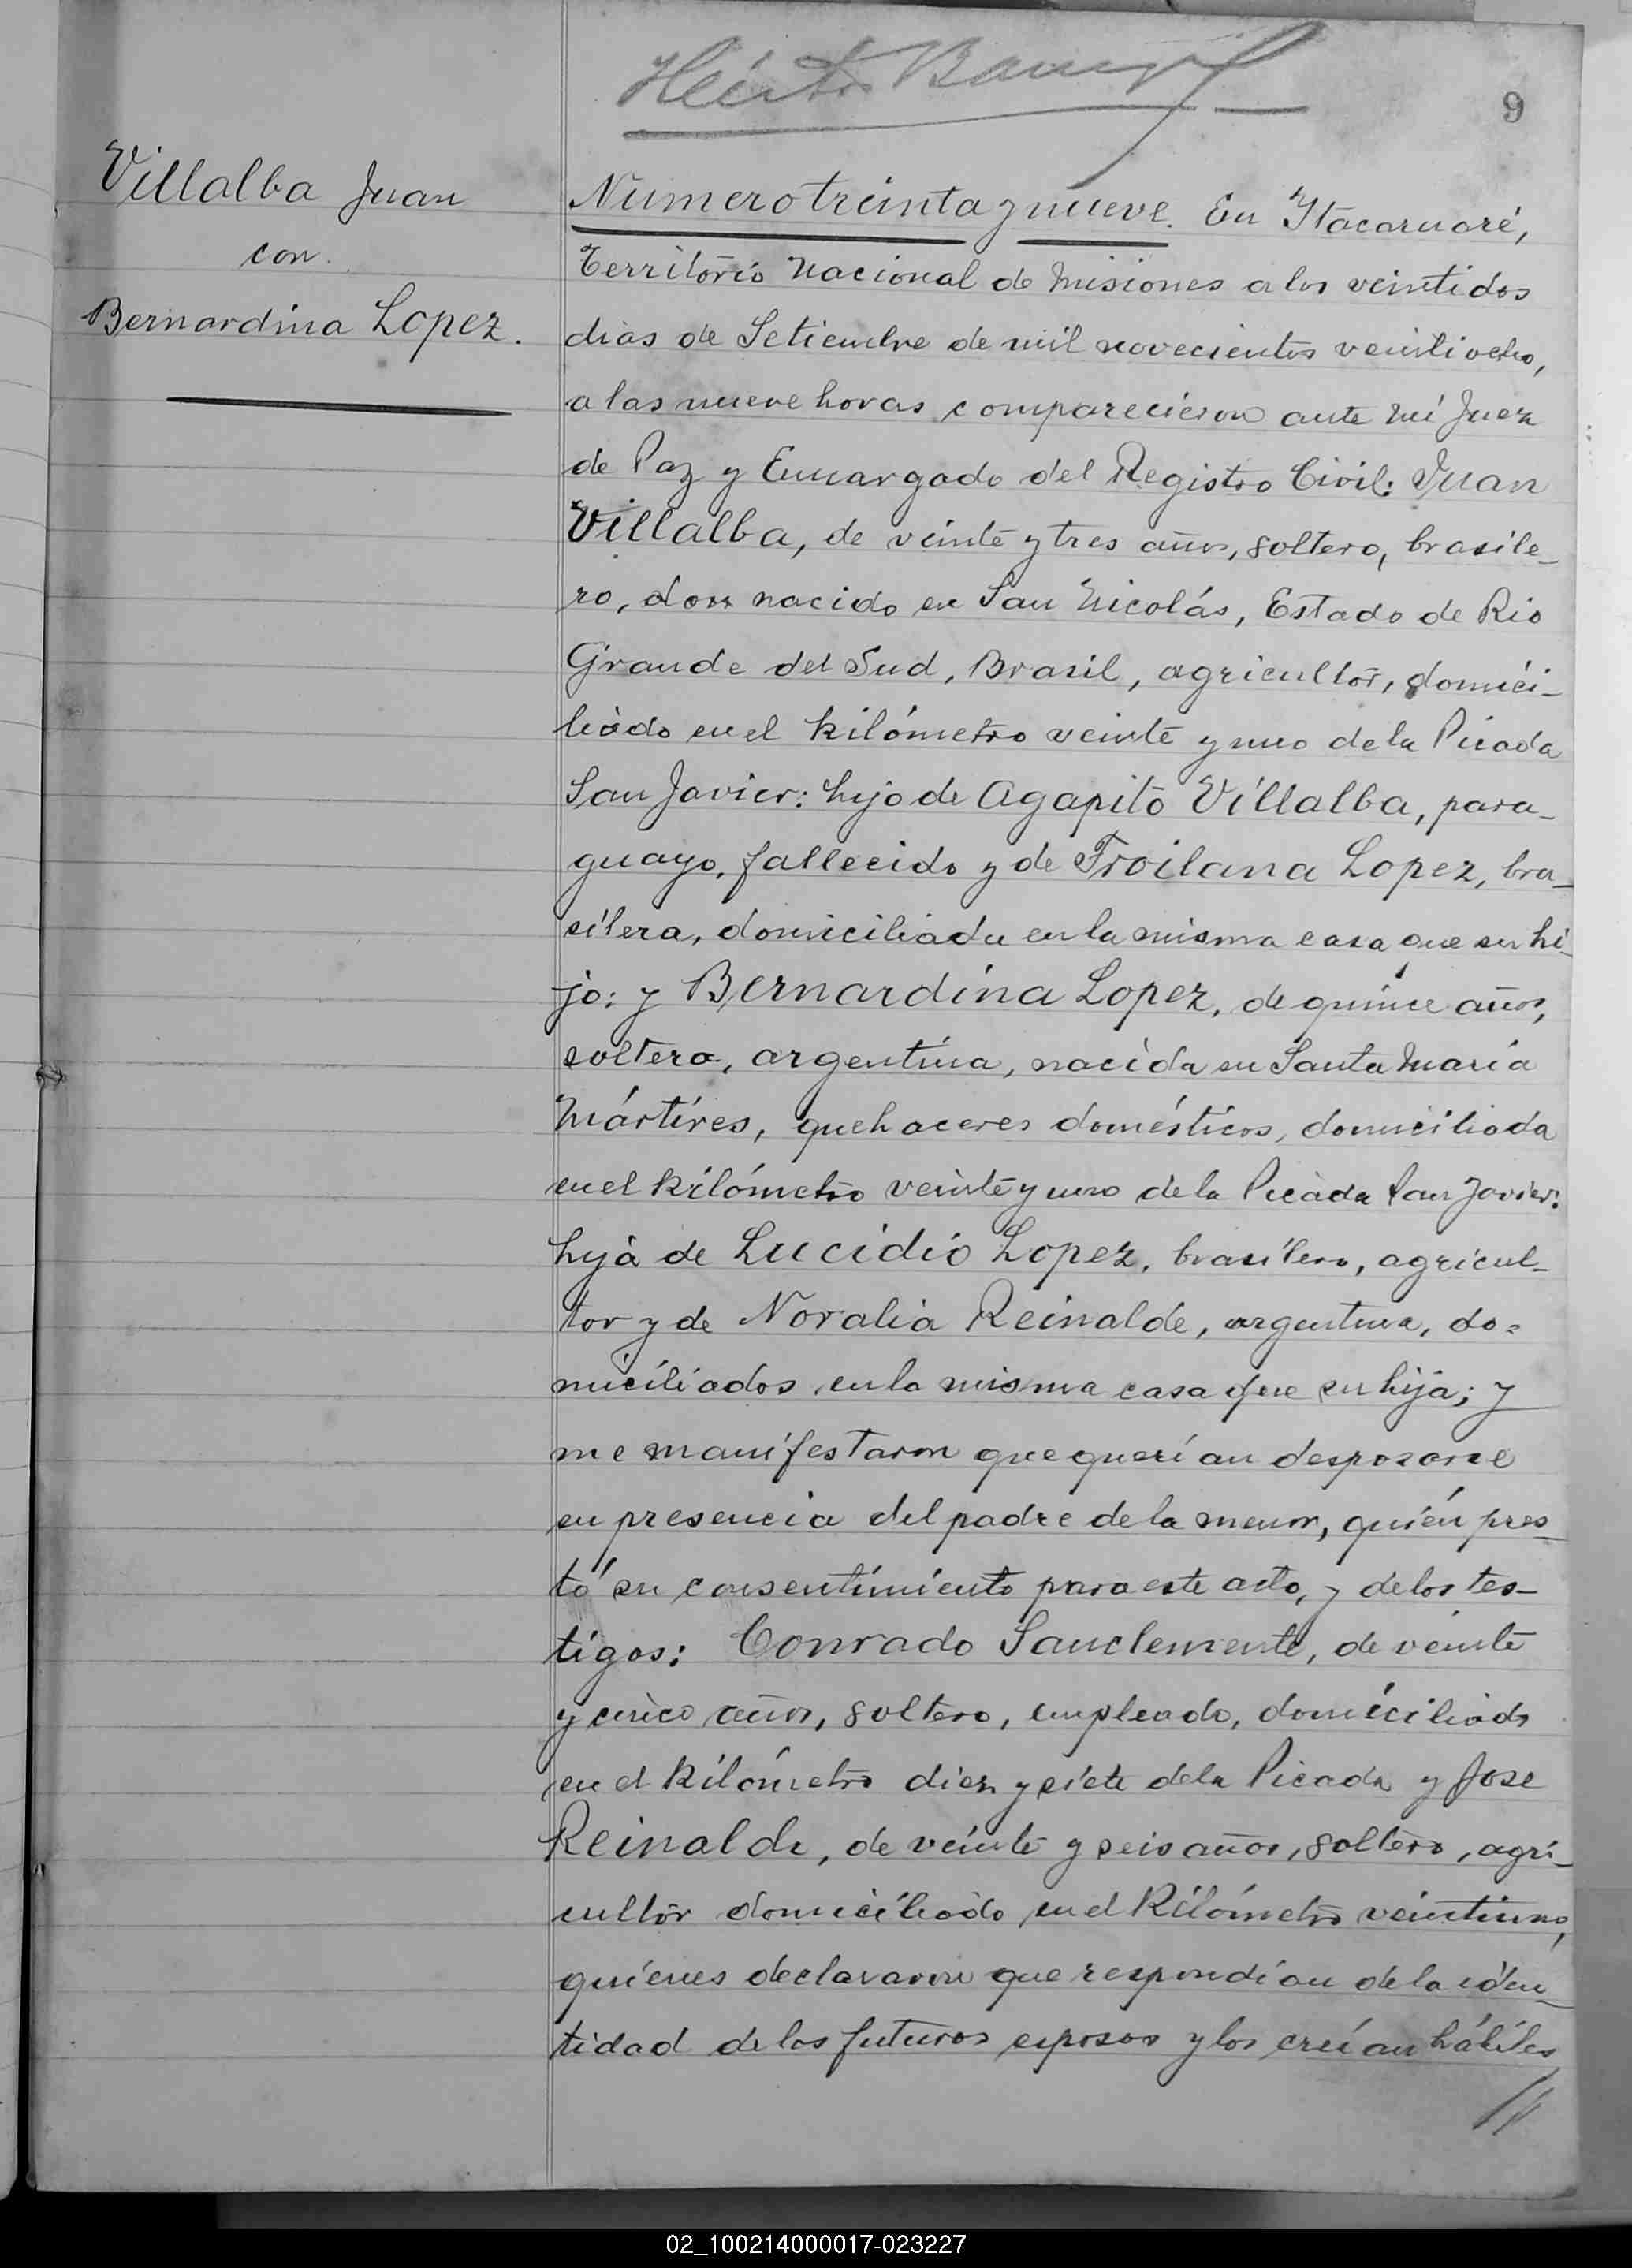 9
Villalba Juan
con
Bernardina Lopez.
Numero treinta y nueve. En Itacaruaré,
Territorio Nacional de Misiones a los veintidos
dias de Setiembre de mil novecientos veintiocho,
a las nueve horas comparecieron ante mí Juez
de Paz y Encargado del Registro Civil: Juan
Villalba, de veinte y tres años, soltero, brasile-
ro, don nacido en San Nicolás, Estado de Rio
Grande del Sud, Brasil, agricultor, domici-
liado en el kilómetro veinte y uno de la Picada
San Javier: hijo de Agapito Villalba, para-
guayo, fallecido y de Troilana Lopez, bra-
silera, domiciliada en la misma casa que su hi-
jo: y Bernardina Lopez, de quince años,
soltera, argentina, nacida en Santa María
Mártires, quehaceres domésticos, domiciliada
en el kilómetro veinte y uno de la Picada San Javier:
hija de Lucidio Lopez, brasilero, agricul-
tor y de Noralia Reinalde, argentina, do-
miciliados en la misma casa que su hija; y
me manifestaron que querían desposarse
en presencia del padre de la menor, quién pres-
tó su consentimiento para este acto, y de los tes-
tigos: Conrado Sanclemente, de veinte
y cinco años, soltero, empleado, domiciliado
en el kilómetro diez y siete de la Picada y Jose
Reinalde, de veinte y seis años, soltero, agri-
cultor domiciliado en el Kilómetro veintiuno,
quienes declararon que respondían de la iden-
tidad de los futuros esposos y los creían hábiles
//
02_100214000017-023227